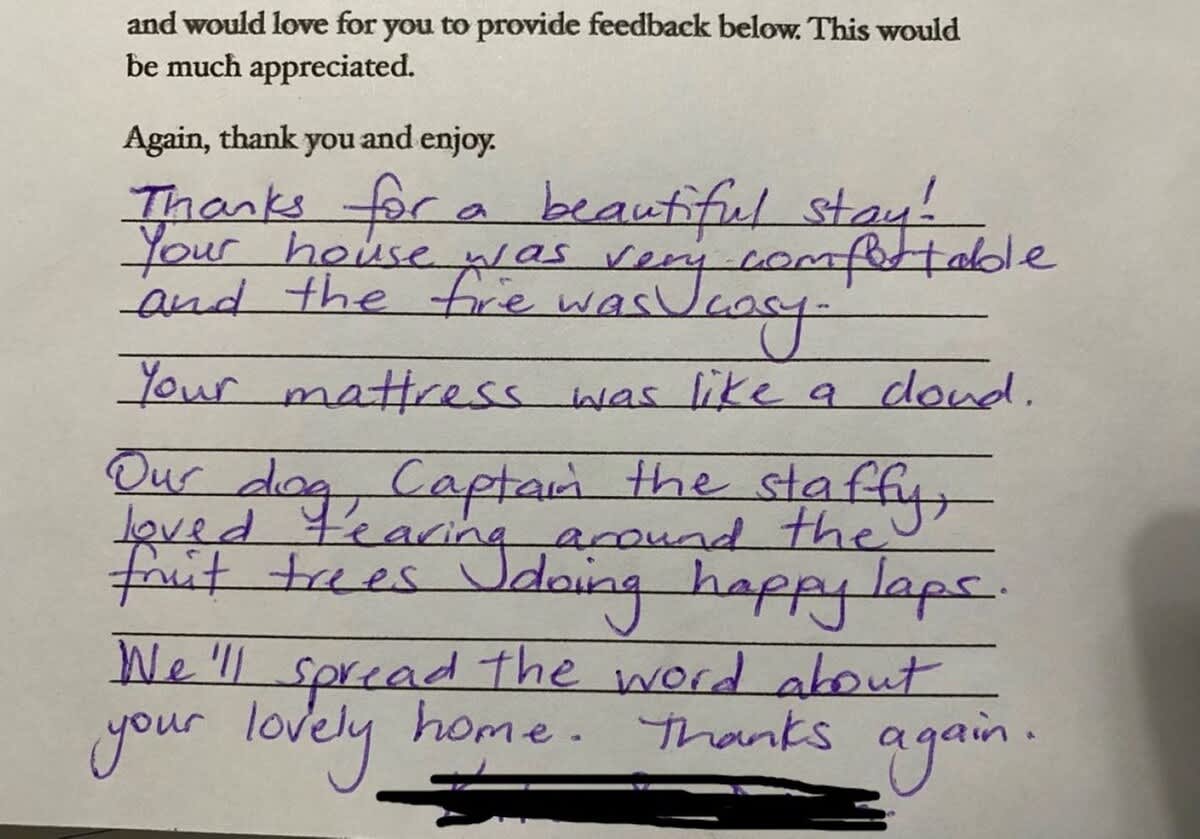 and would love for you to provide feedback below. This would
be much appreciated.
Again, thank you and enjoy.
Thanks for a beautiful stay!
Your house was very comfortable
and the fire was cosy.
Your mattress was like a cloud.
Our dog, Captain the staffy,
loved tearing around the
fruit trees doing happy laps.
We'll spread the word about
your lovely home. Thanks again.